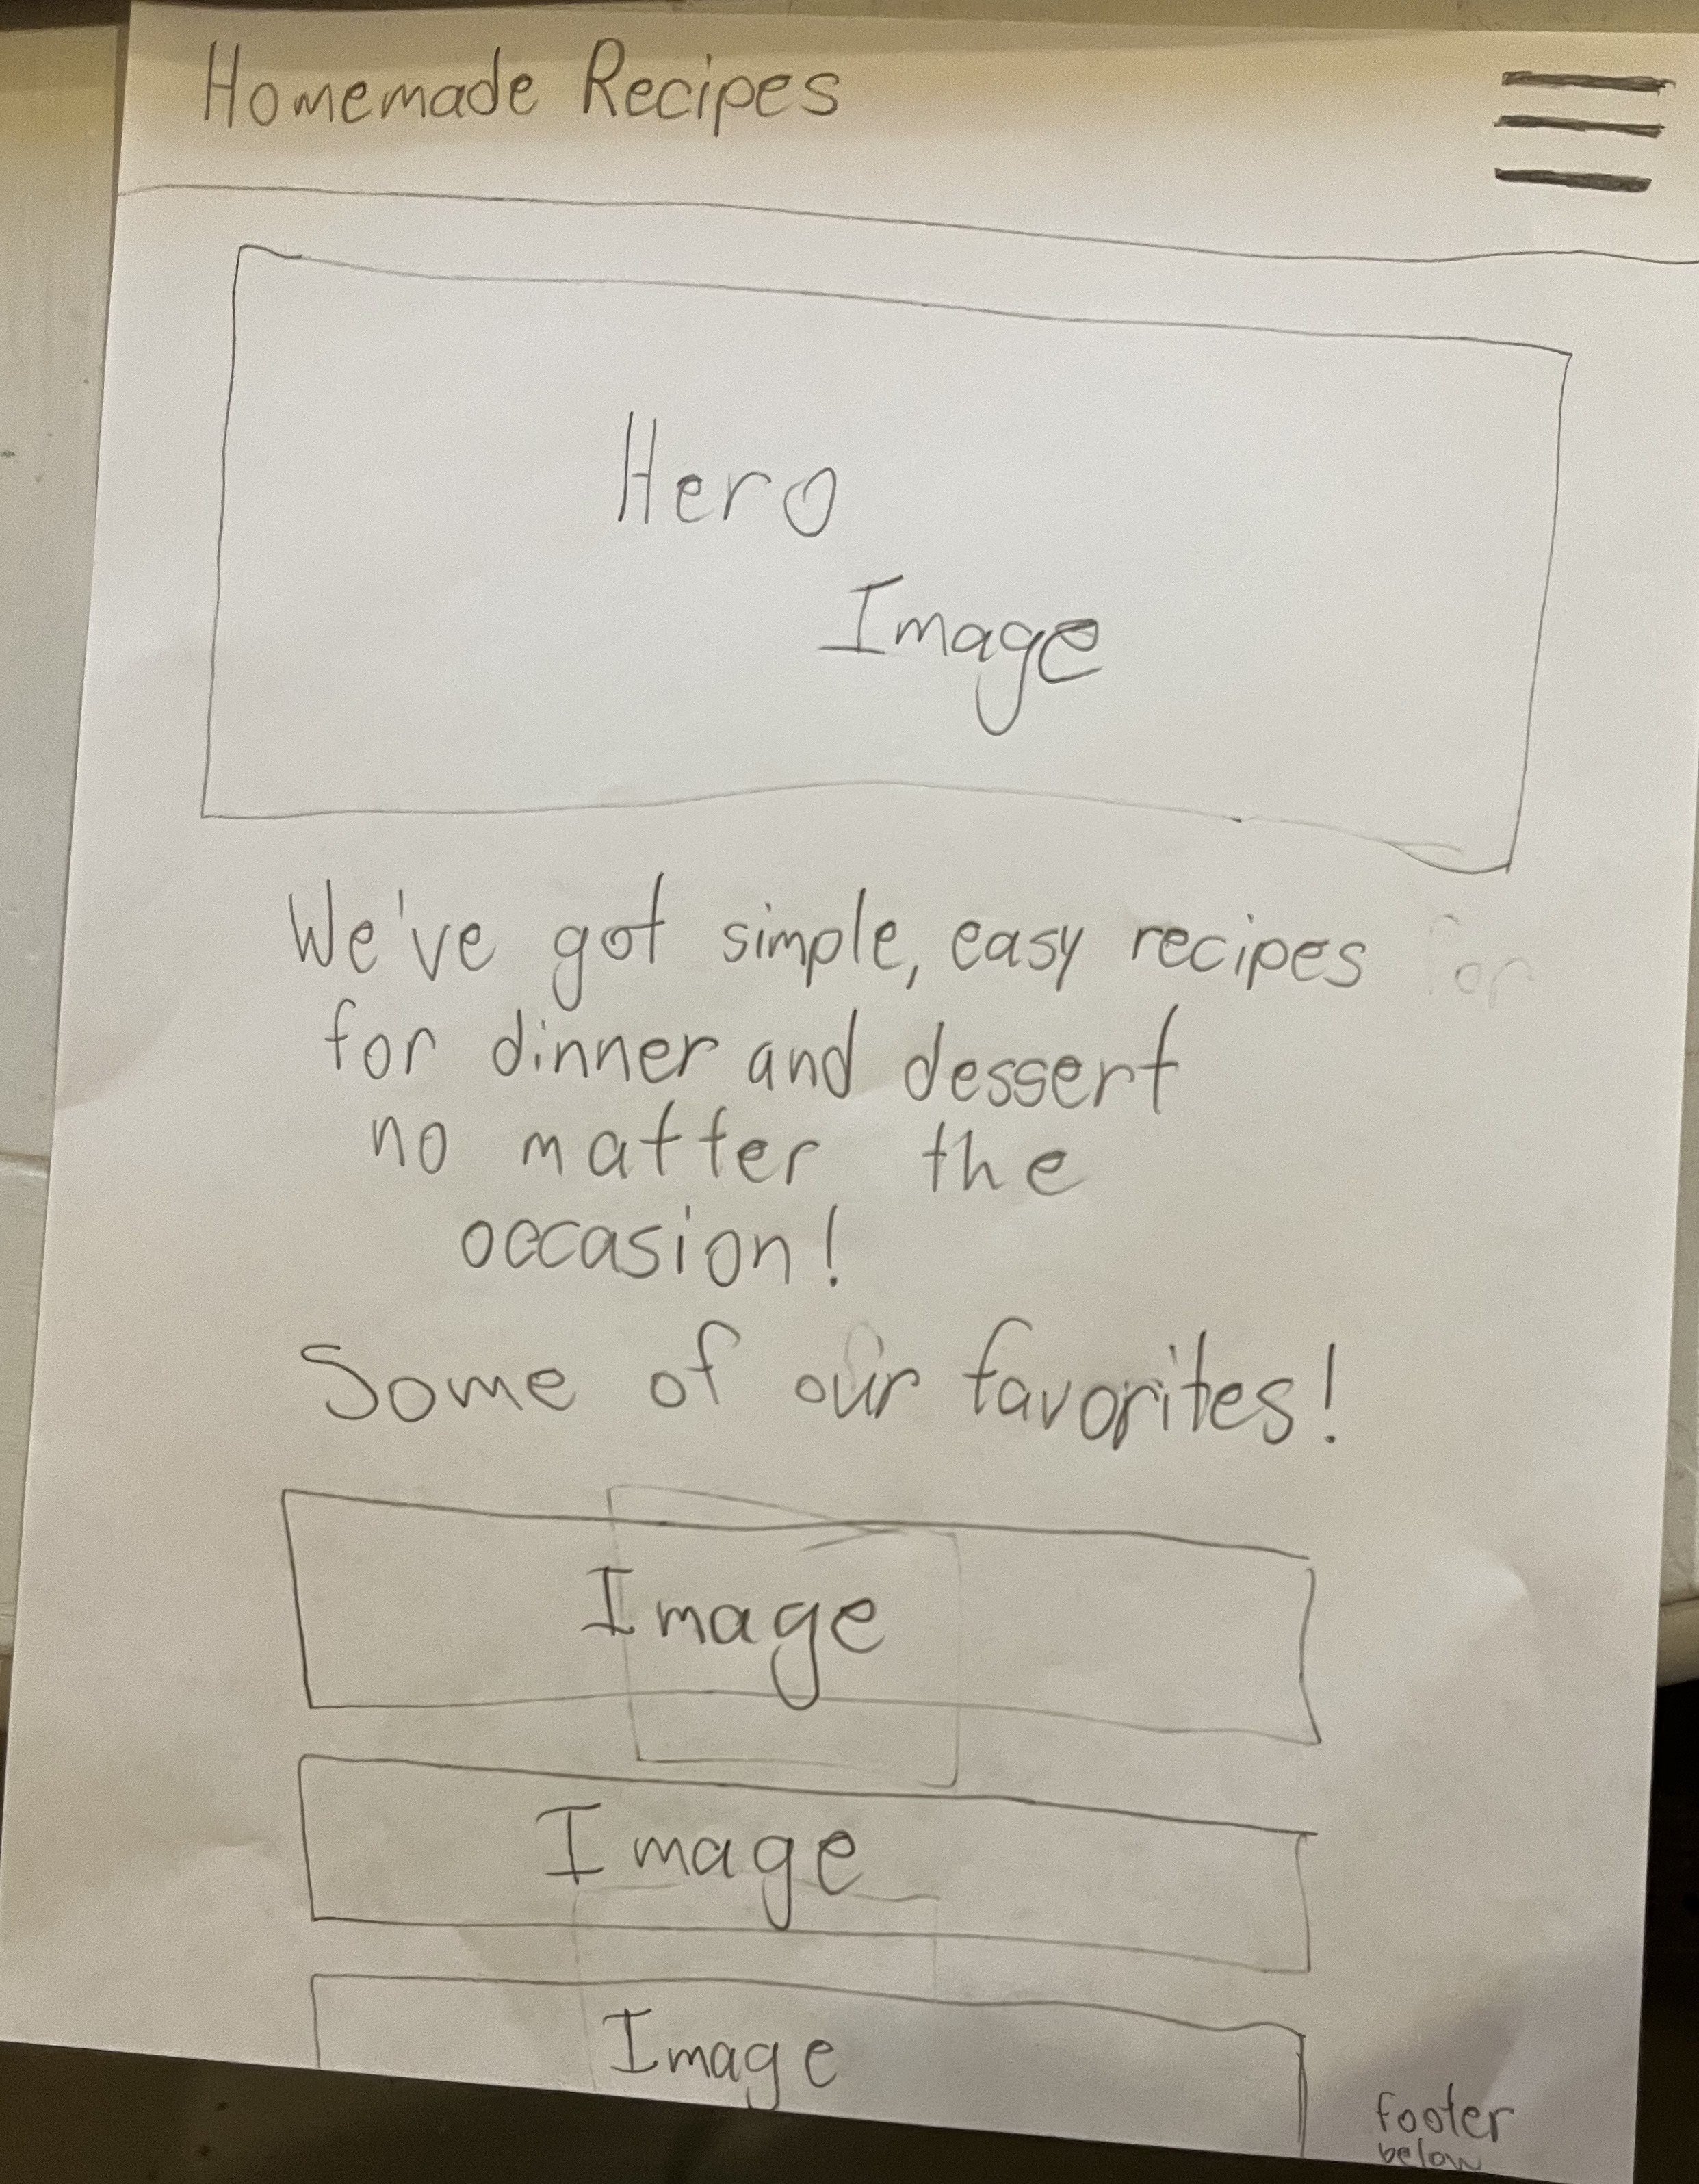 Homemade Recipes
Hero
Image
We've got simple, easy recipes for
for dinner and dessert
no matter the
occasion!
Some of our favorites!
Image
Image
Image
footer
below